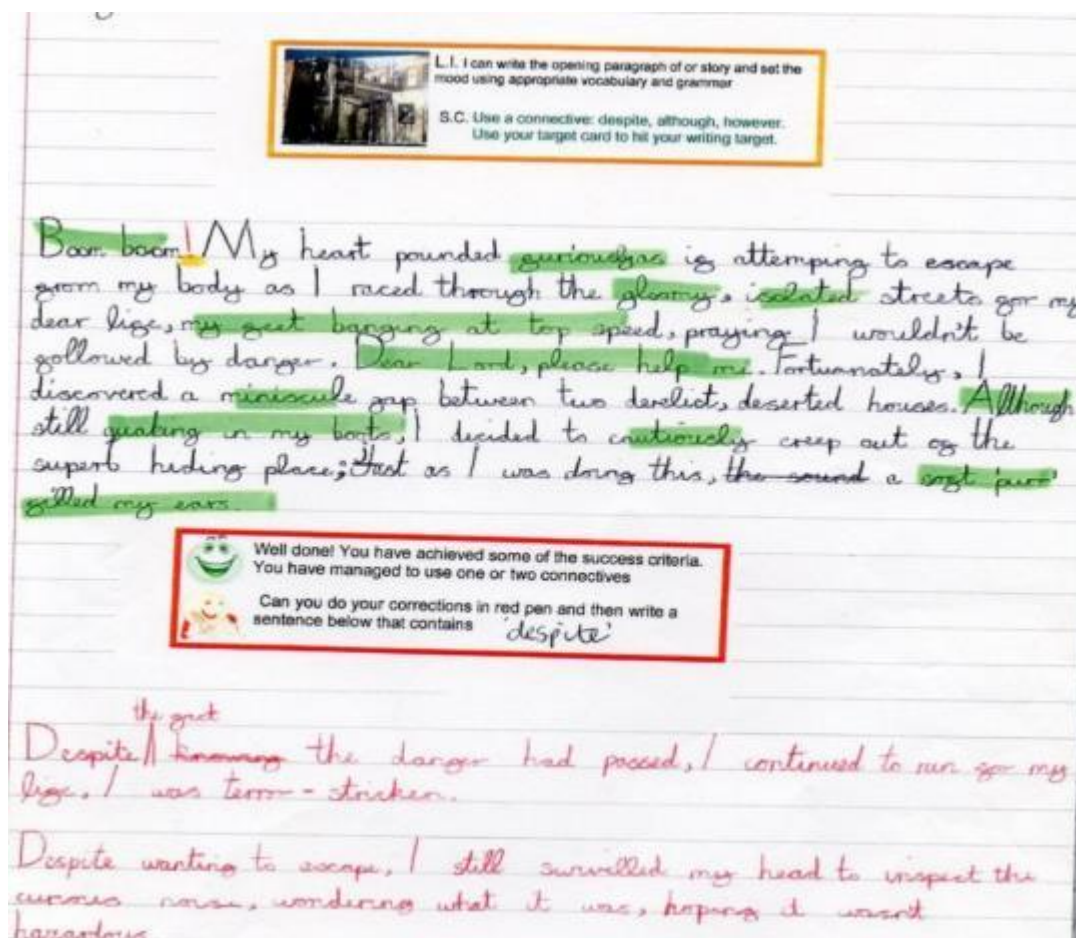 L.I. I can write the opening paragraph of or story and set the
mood using appropriate vocabulary and grammar
S.C. Use a connective: despite, although, however.
Use your target card to hit your writing target.
Boom boom! My heart pounded furiously as if attemping to escape
from my body as I raced through the gloomy, isolated streets for my
dear life, my feet banging at top speed, praying I wouldn't be
followed by danger. Dear Lord, please help me. Fortunnately, I
discovered a miniscule gap between two derelict, deserted houses. Although
still quaking in my boots, I decided to cautiously creep out of the
superb hiding place; Just as I was doing this, the sound a soft 'purr'
filled my ears.
Well done! You have achieved some of the success criteria.
You have managed to use one or two connectives
Can you do your corrections in red pen and then write a
sentence below that contains 'despite'
the fact
Despite knowing the danger had passed, I continued to run for my
life, I was terror-stricken.
Despite wanting to escape, I still survilled my head to inspect the
curious noise, wondering what it was, hoping it wasn't
hazardous